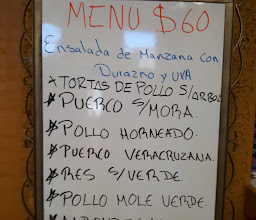 MENU $60
Ensalada de Manzana con
Durazno y UVA
* TORTAS DE POLLO S/ARBOL
* PUERCO S/MORA.
* POLLO HORNEADO.
* PUERCO VERACRUZANA.
* RES S/VERDE.
* POLLO MOLE VERDE.